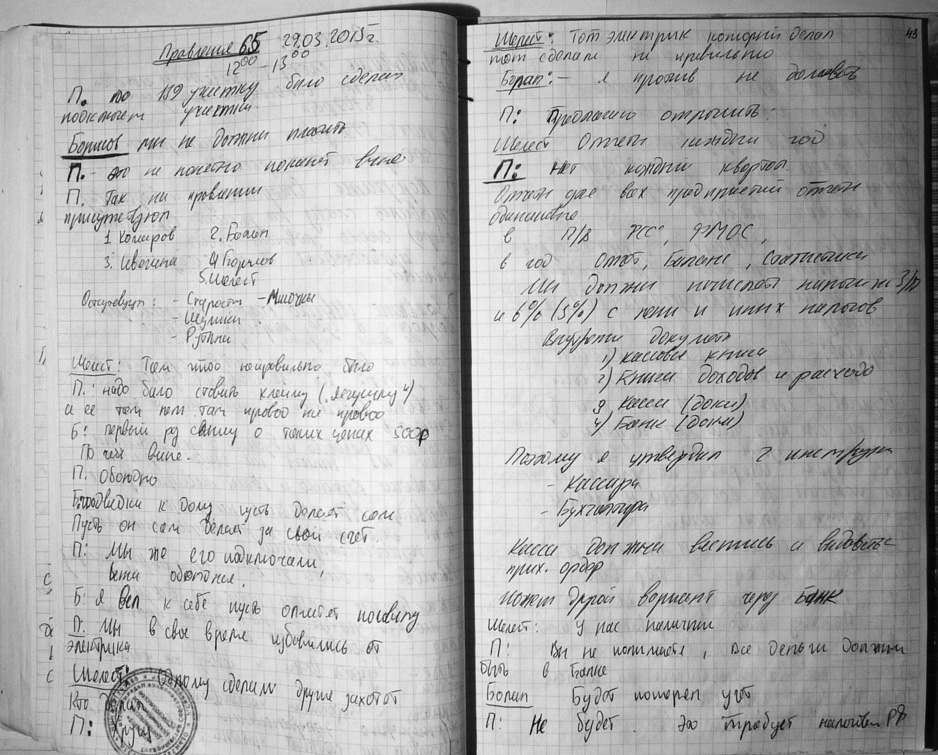 Правление 65 29.03.2015г.
12⁰⁰ - 13⁰⁰
П. по 189 участку было сделан
подключен участки
Боришов мы не должны платить
П. - это не понятно по чьей вине
П. Так на правлении
присутствуют
1. Комаров 2. Болап
3. Ивагина 4. Боришов
5. Шелест
Отсутствуют: - Старости - Милочкы
-
-
Шелест: Там что неправильно было
П.: надо было ставить клейму
а ее там нет там провод на провод
Б: первый раз слышу о таких ценах 500р
По чьей вине.
П. Обоюдно
Б: подводки к дому пусть делает сам
Пусть он сам делает за свой счет.
П: Мы же его подключали,
вина обоюдная.
Б: я вел к себе пусть оплатит половину
П: Мы в свое время избавились от
электрика
Шелест: Одному сделали другие захотят
Кто делал
П: Другой
43
Шелест: Тот электрик который делал
тот сделал не правильно
Болап: - я против не доплачивать
П: Предлагаю отложить.
Шелест Отчет каждый год
П: нет каждый квартал
Отчет для всех предприятий отчет
одинаковые
в П/Ф ФСС, ФМОС,
в год Отчет, Баланс, Статистики
Мы должны начислять налоги на З/п
и 6% (5%) с пени и иных налогов
Внутрени документ
1) Кассовая книга
2) Книга доходов и расходо
3 Касса (доки)
4) Банк (доки)
Поэтому я утвердил 2 инструкци
- Кассира
- Бухгалтера
Касса должна вестись и выдовать
прих. ордер
Может другой вариант через Банк
Шелест: У нас наличи
П: Вы не понимаете, все деньги должны
быть в банке
Болап Будет потерян учет
П: Не будет. Это требует налоговая РФ